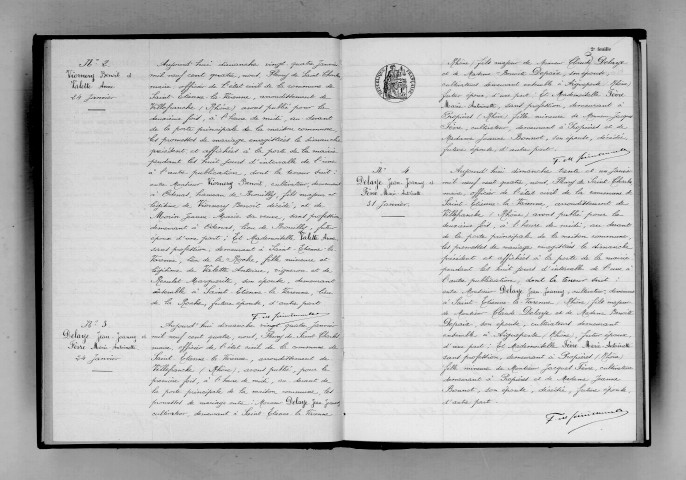 N° 2
Viornery Benoit et
Valette Anne
24 Janvier
Aujourd'hui dimanche vingt quatre Janvier
mil neuf cent quatre, nous, Fleury de Saint Charles
maire officier de l'état civil de la commune de
Saint Etienne la Varenne, arrondissement de
Villefranche (Rhône) avons publié pour la
deuxième fois, à l'heure de midi, au devant
de la porte principale de la maison commune,
les promesses de mariage enregistrées le dimanche
précédent et affichées à la porte de la mairie
pendant les huit jours d'intervalle de l'une
à l'autre publication, dont la teneur suit :
entre Monsieur Viornery Benoit, cultivateur, demeurant
à Odenas, hameau de Brouilly, fils majeur et
légitime de Viornery Benoit décédé, et de
Morin Jeanne Marie sa veuve, sans profession
demeurant à Odenas, lieu de Brouilly, futur
époux d'une part ; Et Mademoiselle Valette Anne
sans profession, demeurant à Saint Etienne la
Varenne, lieu de la Roche, fille mineure et
légitime de Valette Antoine, vigneron et de
Marguerite, son épouse, demeurant
ensemble à Saint Etienne la Varenne, lieu
de la Roche, future épouse, d'autre part
N° 3
Delarze Jean Joanny et
Fère Marie Antoinette
24 Janvier
Aujourd'hui dimanche vingt quatre Janvier
mil neuf cent quatre, nous, Fleury de Saint Charles
maire officier de l'état civil de la commune de
Saint Etienne la Varenne, arrondissement de
Villefranche (Rhône), avons publié, pour la
première fois, à l'heure de midi, au devant de
la porte principale de la maison commune, les
promesses de mariage entre : Monsieur Delarze Jean Joanny,
cultivateur, demeurant à Saint Etienne la Varenne
2e feuillet
(Rhône) fils majeur de Monsieur Claude Delarze
et de Madame Benoite Depaix, son épouse,
cultivateurs demeurant ensemble à Aigueperse (Rhône)
futur époux, d'une part ; Et Mademoiselle Fère
Marie Antoinette, sans profession, demeurant à
Propières (Rhône) fille mineure de Monsieur Jacques
Fère, cultivateur, demeurant à Propières et de
Madame Jeanne Bonnot, son épouse, décédée,
future épouse, d'autre part.
N° 4
Delarze Jean Joanny et
Fère Marie Antoinette
31 Janvier
Aujourd'hui dimanche trente et un Janvier
mil neuf cent quatre, nous, Fleury de Saint Charles
maire, officier de l'état civil de la commune de
Saint Etienne la Varenne, arrondissement de
Villefranche (Rhône) avons publié pour la
deuxième fois, à l'heure de midi, au devant
de la porte principale de la maison commune,
les promesses de mariage enregistrées le dimanche
précédent et affichées à la porte de la mairie
pendant les huit jours d'intervalle de l'une à
l'autre publication, dont la teneur suit :
entre Monsieur Delarze Jean Joanny, cultivateur, demeurant
à Saint Etienne la Varenne, Rhône, fils majeur
de Monsieur Claude Delarze et de Madame Benoite
Depaix, son épouse, cultivateurs demeurant
ensemble à Aigueperse (Rhône), futur époux
d'une part ; Et Mademoiselle Fère Marie Antoinette
sans profession, demeurant à Propières (Rhône)
fille mineure de Monsieur Jacques Fère, cultivateur
demeurant à Propières et de Madame Jeanne
Bonnot, son épouse, décédée, future épouse,
d'autre part.